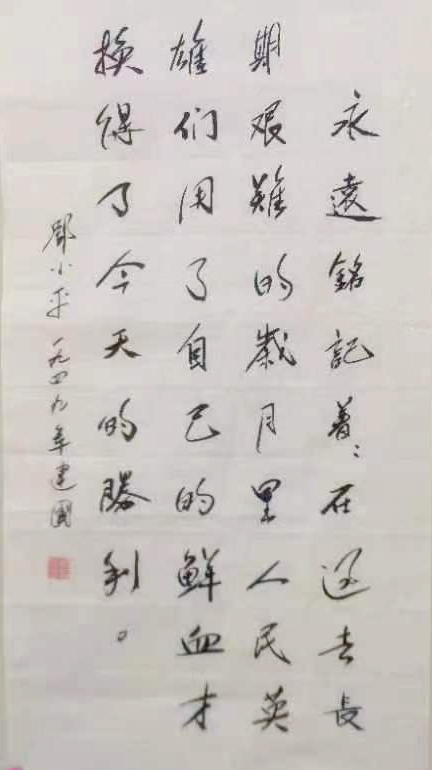 永遠銘記着：在過去長
期艰難的歲月里人民英
雄们用了自己的鮮血才
换得了今天的勝利。
鄧小平 一九四九年建國